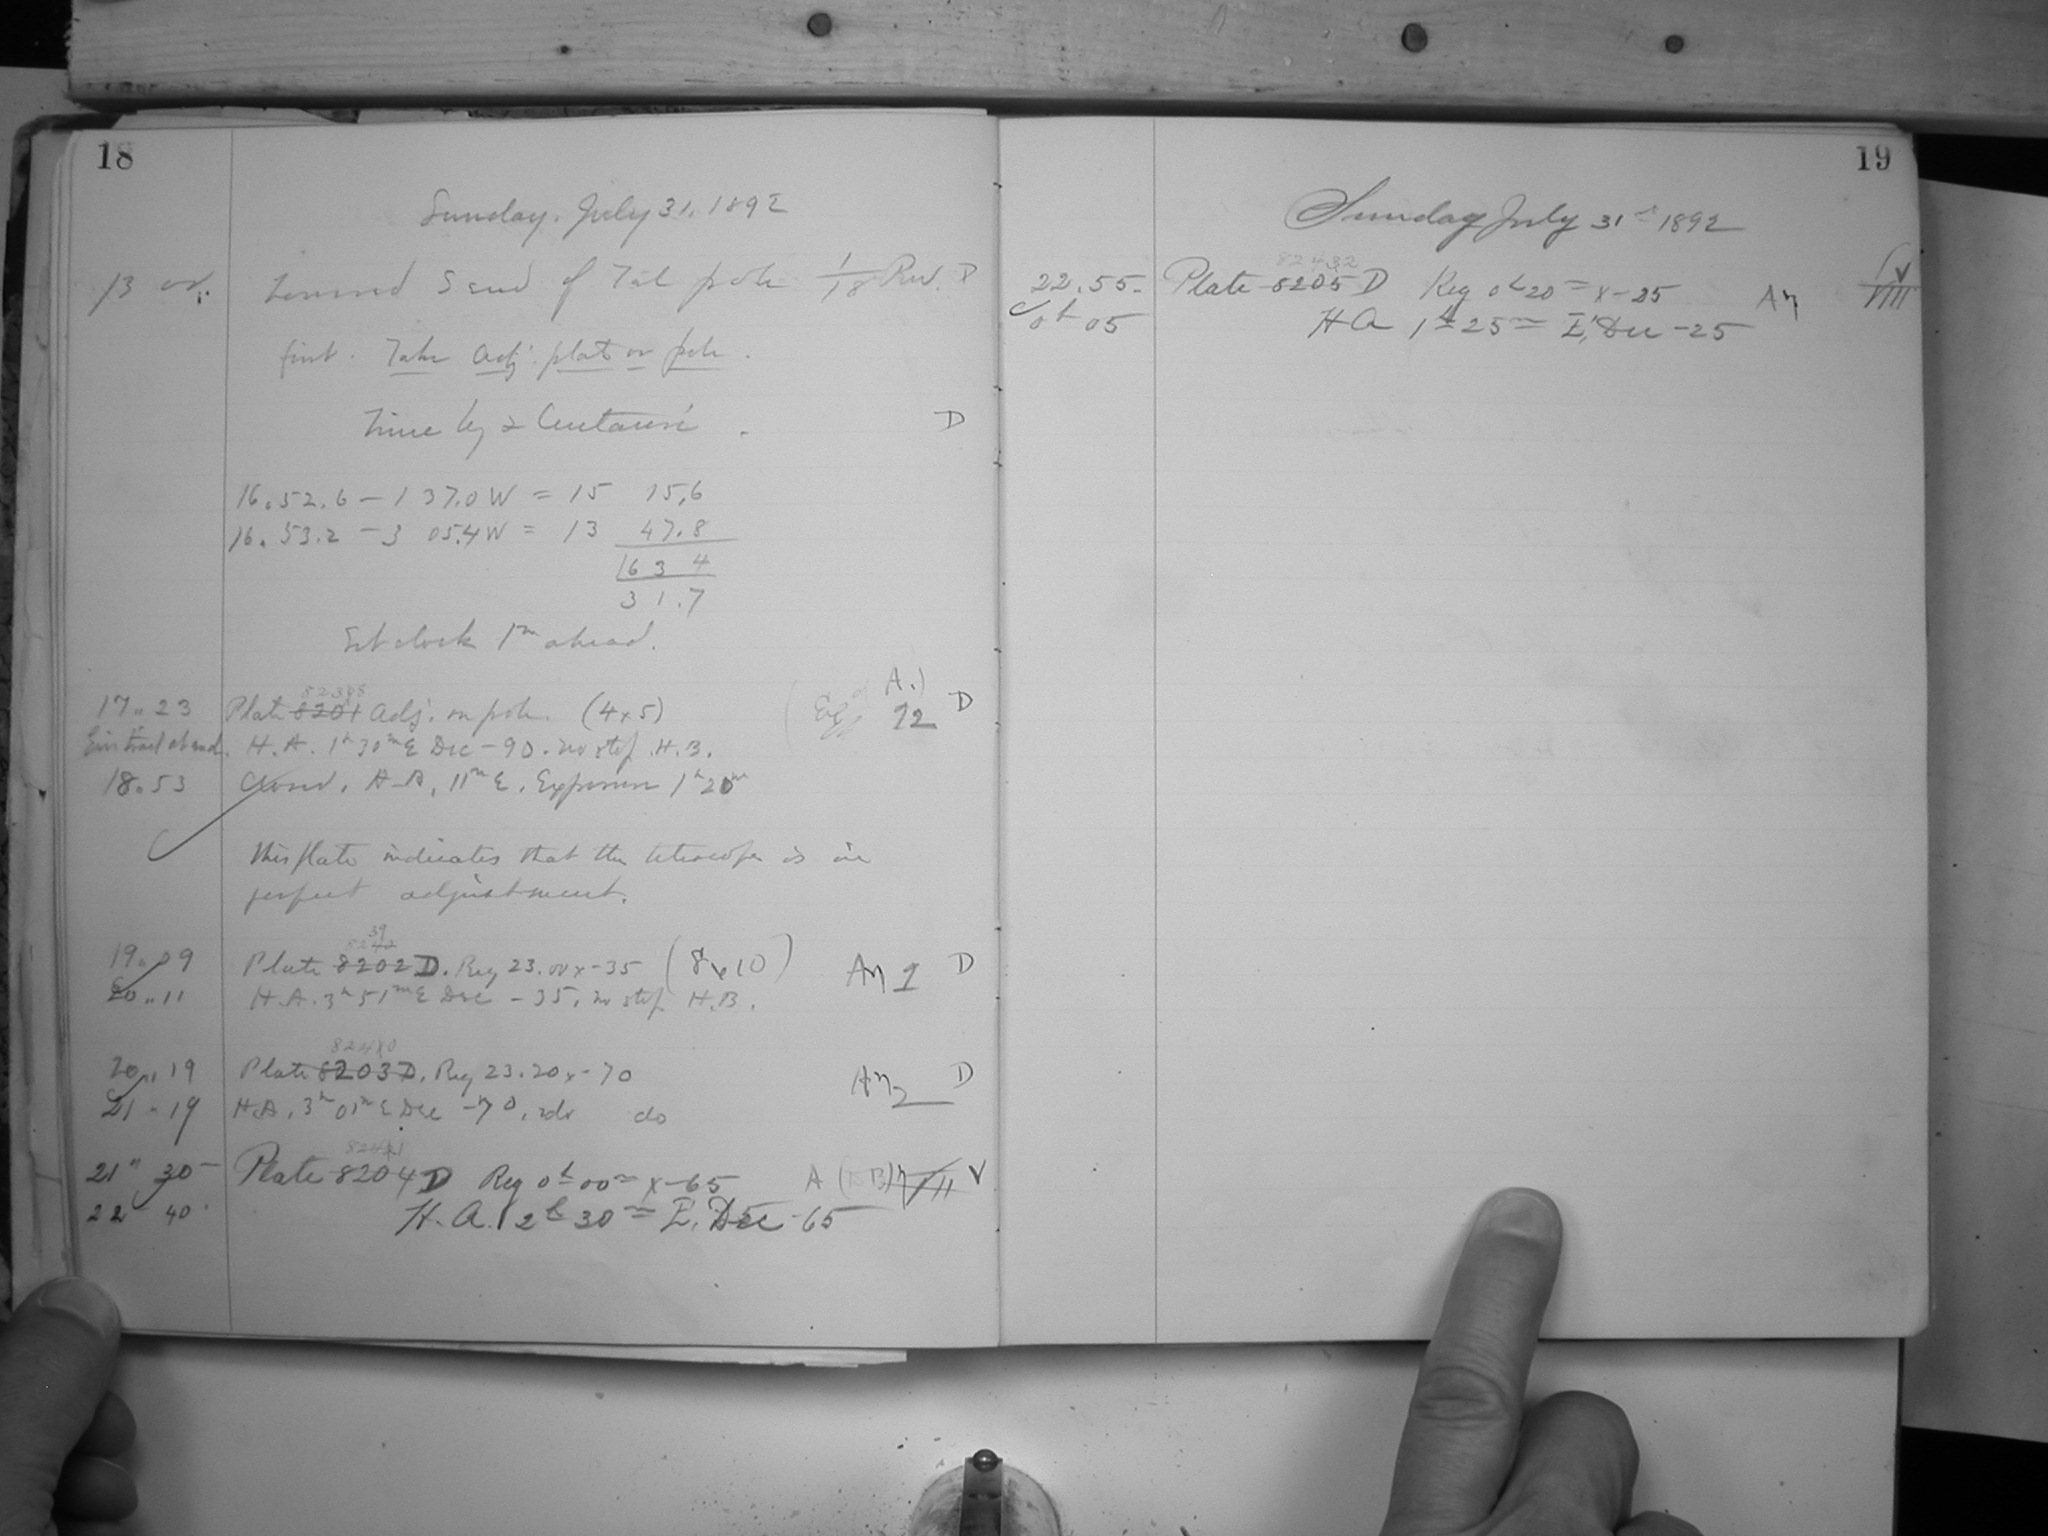 18
Sunday. July 31, 1892
13 00. Lowered S end of Tel pole 1/18 Rev. D
first. Take adj. plate on pole.
Time by α Centauri. D
16.52.6 – 1 37.0 W = 15 15.6
16.53.2 – 3 05.4 W = 13 47.8
163 4
31.7
Set clock 1m ahead.
17.23 Plate 8201 Adj. on pole. (4x5) D
H.A. 1h 30m E Dec – 90. no stop. H.B.
18.53 Closed. H.A. 11m E. Exposure 1h 20m
This plate indicates that the telescope is in
perfect adjustment.
39
19.09 Plate 8202 D. Reg 23.00 x – 35 (8x10) D
20.11 H.A. 3h 51m E Dec – 35. no stop H.B.
20.19 Plate 8203 D. Reg 23.20 x – 70 D
21.19 H.A. 3h 01m E Dec – 70. do do
21h 30 Plate 8204 D Reg 0h 00m x – 65 A
22 40 H.A. 2h 30m E. Dec – 65
19
Sunday July 31st 1892
22.55. Plate 8205 D Reg 0h 20m x – 25
0h 05 HA 1h 25m E, Dec – 25